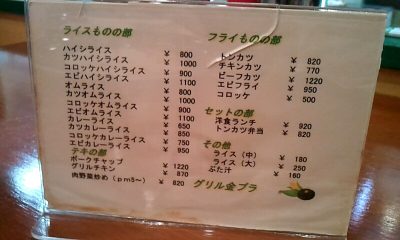 ライスものの部
ハイシライス ¥ 800
カツハイシライス ¥ 1000
コロッケハイシライス ¥ 900
エビハイシライス ¥ 1100
オムライス ¥ 800
カツオムライス ¥ 1000
コロッケオムライス ¥ 900
エビオムライス ¥ 1100
カレーライス ¥ 650
カツカレーライス ¥ 850
コロッケカレーライス ¥ 750
エビカレーライス ¥ 950
テキの部
ポークチャップ ¥ 1220
グリルチキン ¥ 870
肉野菜炒め(pm5~) ¥ 820
フライものの部
トンカツ ¥ 820
チキンカツ ¥ 770
ビーフカツ ¥ 1220
エビフライ ¥ 950
コロッケ ¥ 500
セットの部
洋食ランチ ¥ 920
トンカツ弁当 ¥ 820
その他
ライス(中) ¥ 180
ライス(大) ¥ 250
ぶた汁 ¥ 160
グリル金プラ